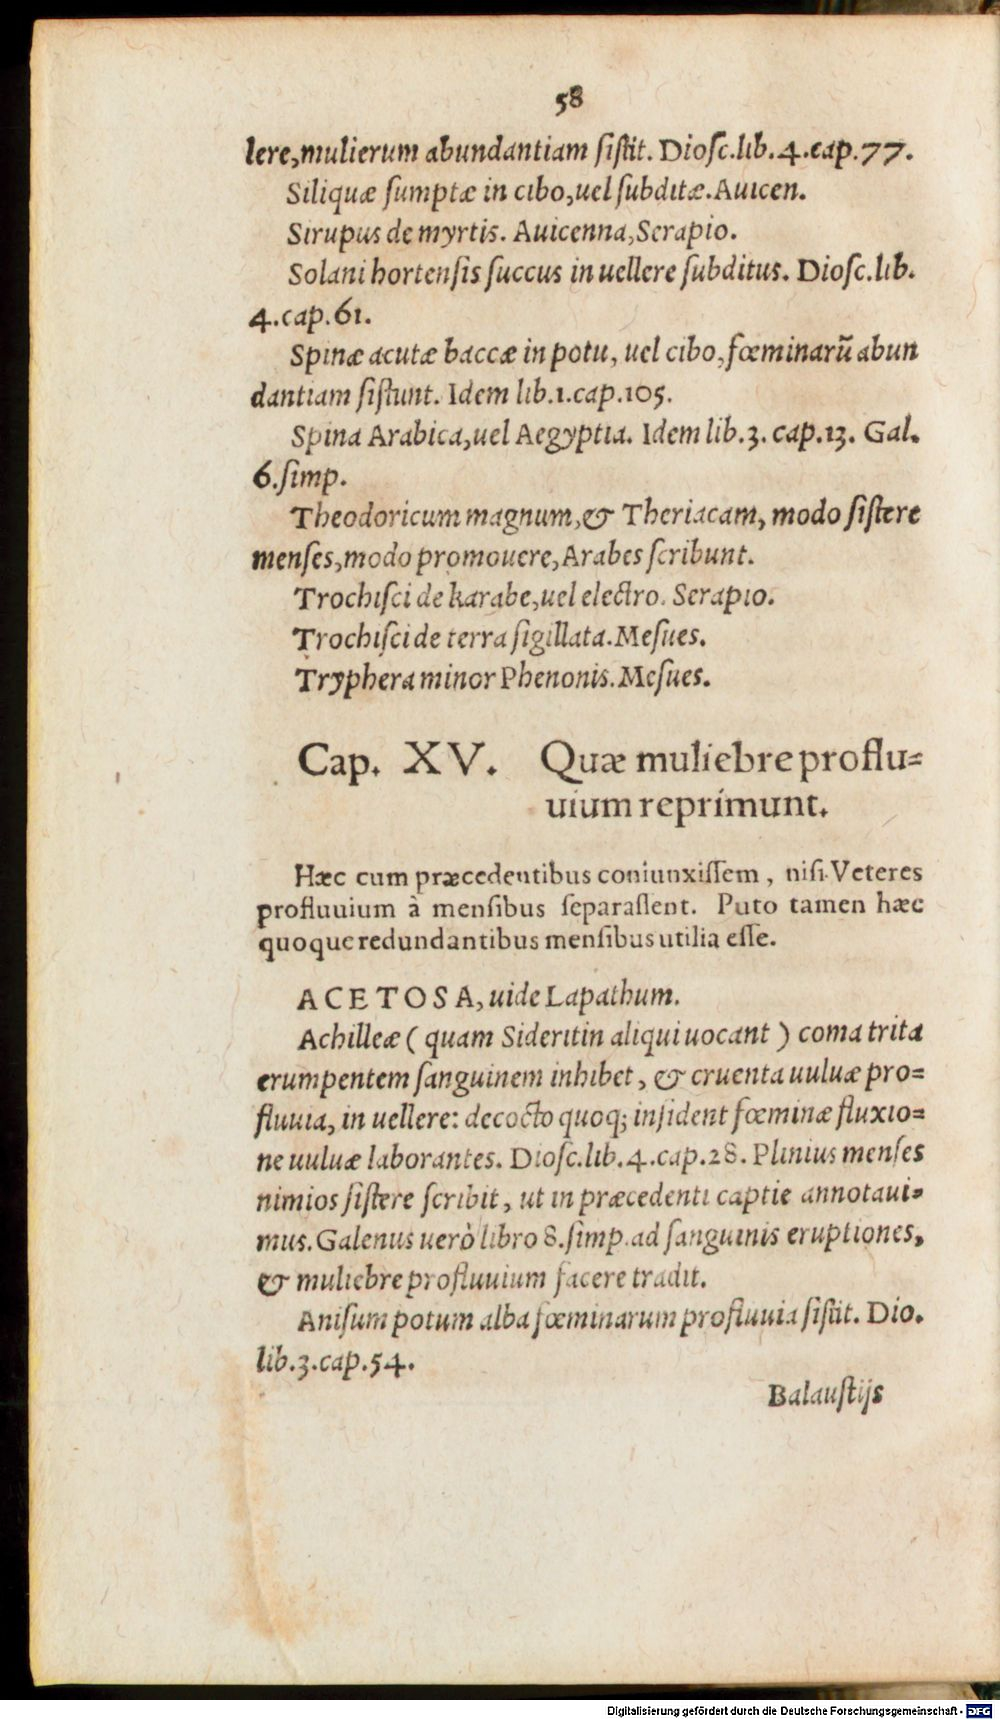 58
lere,mulierum abundantiam ſiſtit. Dioſc.lib.4.cap.77.
Siliquæ ſumptæ in cibo,uel ſubditæ.Auicen.
Sirupus de myrtis. Auicenna,Serapio.
Solani hortenſis ſuccus in uellere ſubditus. Dioſc.lib.
4.cap.61.
Spinæ acutæ baccæ in potu, uel cibo,fœminarũ abun
dantiam ſiſtunt. Idem lib.1.cap.105.
Spina Arabica,uel Aegyptia. Idem lib.3. cap.13. Gal.
6.ſimp.
Theodoricum magnum,& Theriacam, modo ſiſtere
menſes,modo promouere,Arabes ſcribunt.
Trochiſci de karabe,uel electro. Serapio.
Trochiſci de terra ſigillata.Meſues.
Tryphera minor Phenonis.Meſues.
Cap. XV. Quæ muliebre proflu=
uium reprimunt.
Hæc cum præcedentibus coniunxiſſem, niſi Veteres
profluuium à menſibus ſeparaſſent. Puto tamen hæc
quoque redundantibus menſibus utilia eſſe.
ACETOSA, uide Lapathum.
Achilleæ ( quam Sideritin aliqui uocant ) coma trita
erumpentem ſanguinem inhibet, & cruenta uuluæ pro=
fluuia, in uellere: decocto quoq; inſident fœminæ fluxio=
ne uuluæ laborantes. Dioſc.lib.4.cap.28. Plinius menſes
nimios ſiſtere ſcribit, ut in præcedenti captie annotaui=
mus. Galenus uerò libro 8.ſimp.ad ſanguinis eruptiones,
& muliebre profluuium facere tradit.
Aniſum potum alba fœminarum profluuia ſiſtit. Dio.
lib.3.cap.54.
Balauſtijs
Digitalisierung gefördert durch die Deutsche Forschungsgemeinschaft - DFG